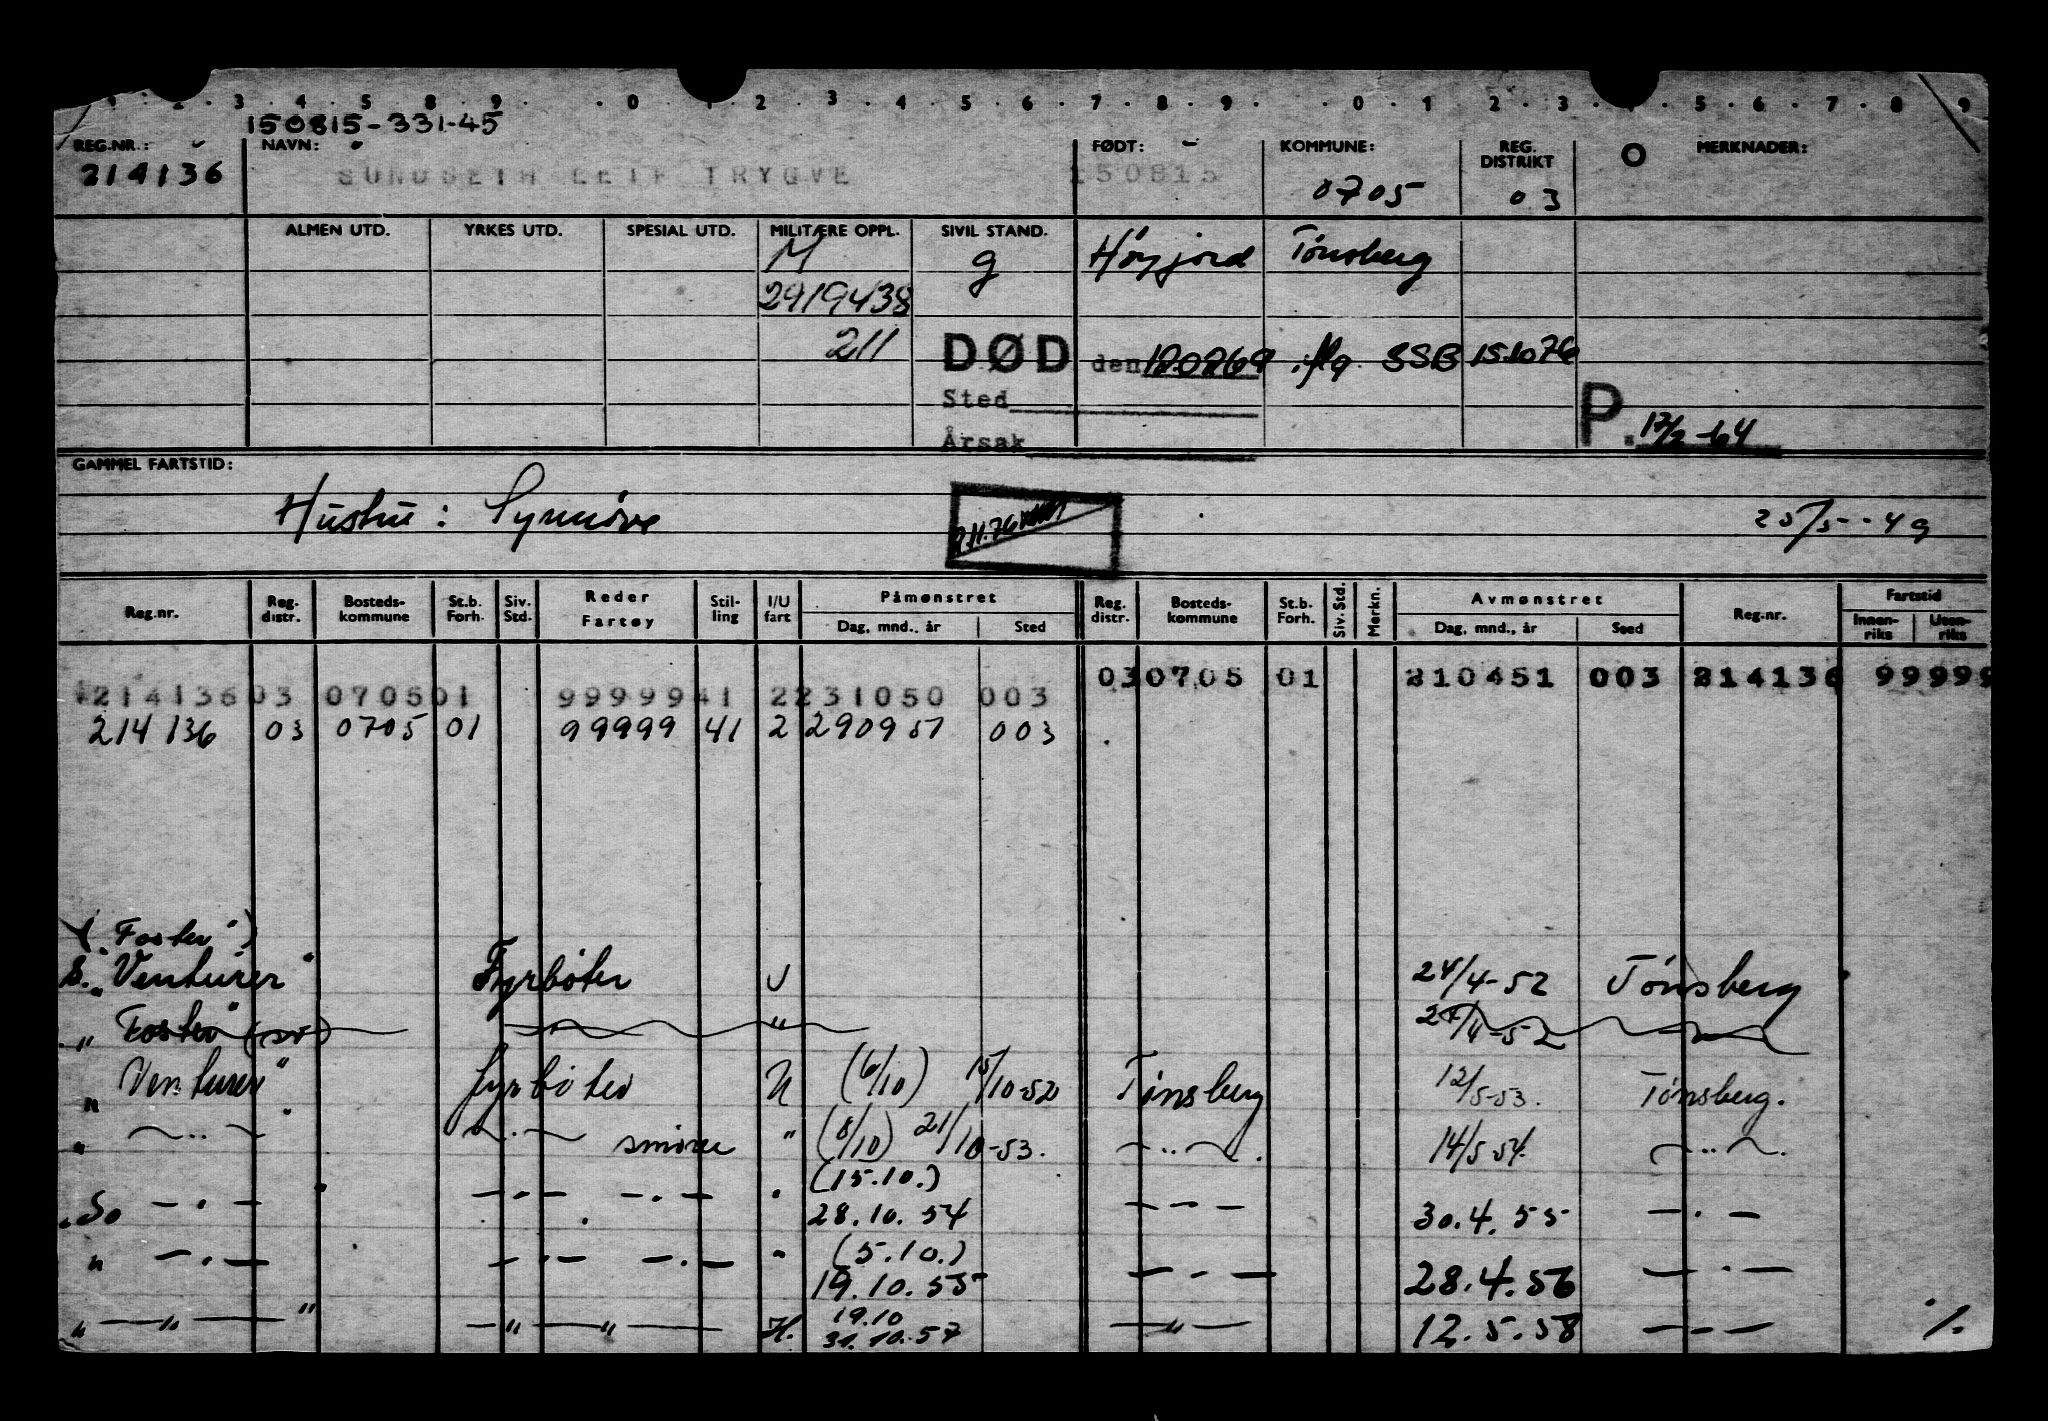 1 2 3 4 5 8 9 0 1 2 3 4 5 6 7 8 9 0 1 2 3 4 5 6 7 8 9
150815-331-45
REG.NR.: NAVN: FØDT: KOMMUNE: REG. DISTRIKT MERKNADER:
214136 SUNDSETH LEIF TRYGVE 150815 0705 03
ALMEN UTD. YRKES UTD. SPESIAL UTD. MILITÆRE OPPL. SIVIL STAND.
M g Høyjord Tønsberg
2919438
211 DØD den iflg. SSB 151076
Sted
P. 17/2-64
Årsak
GAMMEL FARTSTID:
Hustru: Synnøve 25/5-49
Reg.nr. Reg. distr. Bosteds-kommune St.b. Forh. Siv. Std. Reder Fartøy Stil-ling I/U fart Påmønstret Dag, mnd., år Sted Reg. distr. Bosteds-kommune St.b. Forh. Siv. Std. Merkn. Avmønstret Dag, mnd., år Sted Reg.nr. Fartstid Innen-riks Uten-riks
030705 01 210451 003 214136 99999
214136 03 0705 01 99999 41 2 231050 003
214136 03 0705 01 99999 41 2 290951 003
("Foster")
S. "Venturer" Fyrbøter U 24/4-52 Tønsberg
" Foster" " 24/4-52
" Venturer" fyrbøter U (6/10) 15/10-52 Tønsberg 12/5-53. Tønsberg.
" — " — — " — smører " (8/10) 21/10-53. — " — 14/5 54. — " —
(15.10.)
"So — " — — " — — " — " 28.10.54 — — — 30.4.55 — " —
(5.10.)
" — " — — " — — " — " 19.10.55 — " — 28.4.56 — " —
19.10
" — " — " — " — " — 31.10.57 — " — 12.5.58 — — — %